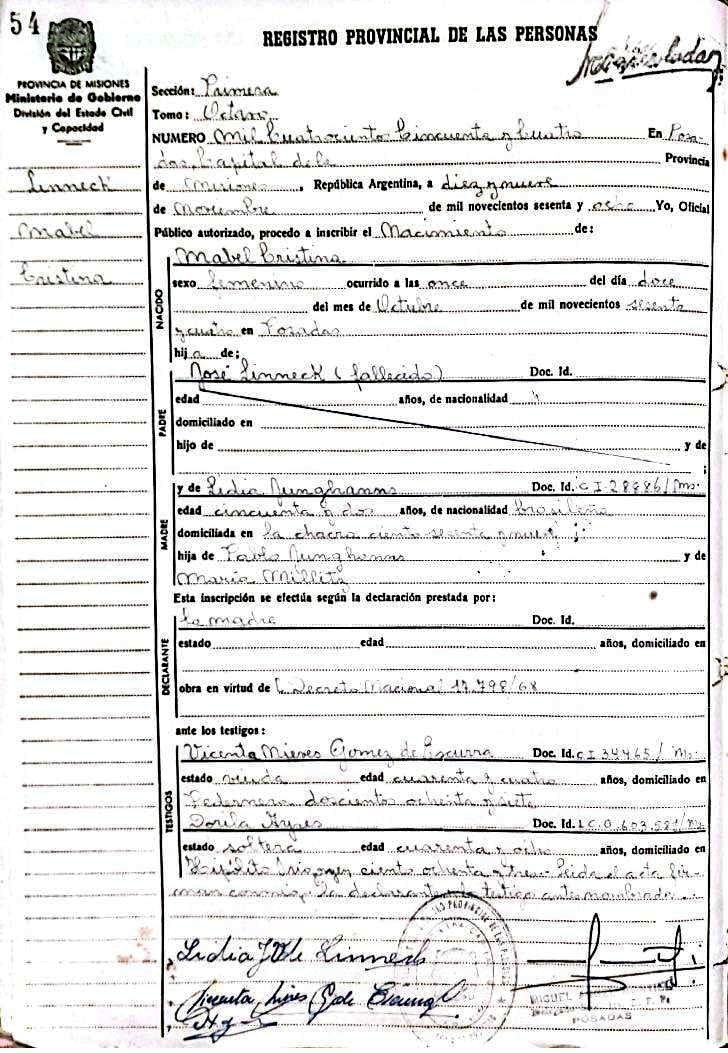 54
REGISTRO PROVINCIAL DE LAS PERSONAS
PROVINCIA DE MISIONES
Ministerio de Gobierno
División del Estado Civil
y Capacidad
Linneck
Mabel
Cristina
Sección: Primera
Tomo: Octavo
NUMERO Mil Cuatrociento Cincuenta y Cuatro En Posa-
das Capital de la Provincia
de Misiones, República Argentina, a diez y nueve
de Noviembre de mil novecientos sesenta y ocho Yo, Oficial
Público autorizado, procedo a inscribir el Nacimiento de:
NACIDO
Mabel Cristina
sexo femenino ocurrido a las once del día doce
del mes de Octubre de mil novecientos sesenta
y cuatro en Posadas
hija de:
PADRE
José Linneck (fallecido) Doc. Id.
edad años, de nacionalidad
domiciliado en
hijo de y de
;
MADRE
y de Lidia Junghanns Doc. Id. C I 28886/Ms.
edad cincuenta y dos años, de nacionalidad brasileña
domiciliada en la chacra ciento sesenta y nueve ;
hija de Pablo Junghanns y de
María Millitz
Esta inscripción se efectúa según la declaración prestada por:
DECLARANTE
la madre Doc. Id.
estado edad años, domiciliado en
obra en virtud de Decreto Nacional 17.798/68
ante los testigos:
TESTIGOS
Vicenta Nieves Gomez de Escurra Doc. Id. C I 34465/Ms.
estado viuda edad cuarenta y cuatro años, domiciliado en
Pedernera doscientos ochenta y siete
Dorila Doc. Id. L C 0.603.581/Ms.
estado soltera edad cuarenta y ocho años, domiciliado en
Hipólito Irigoyen ciento ochenta y tres. Leida el acta fir-
man conmigo la declarante y testigo ante nombrada.
Lidia J. de Linneck
MIGUEL
POSADAS